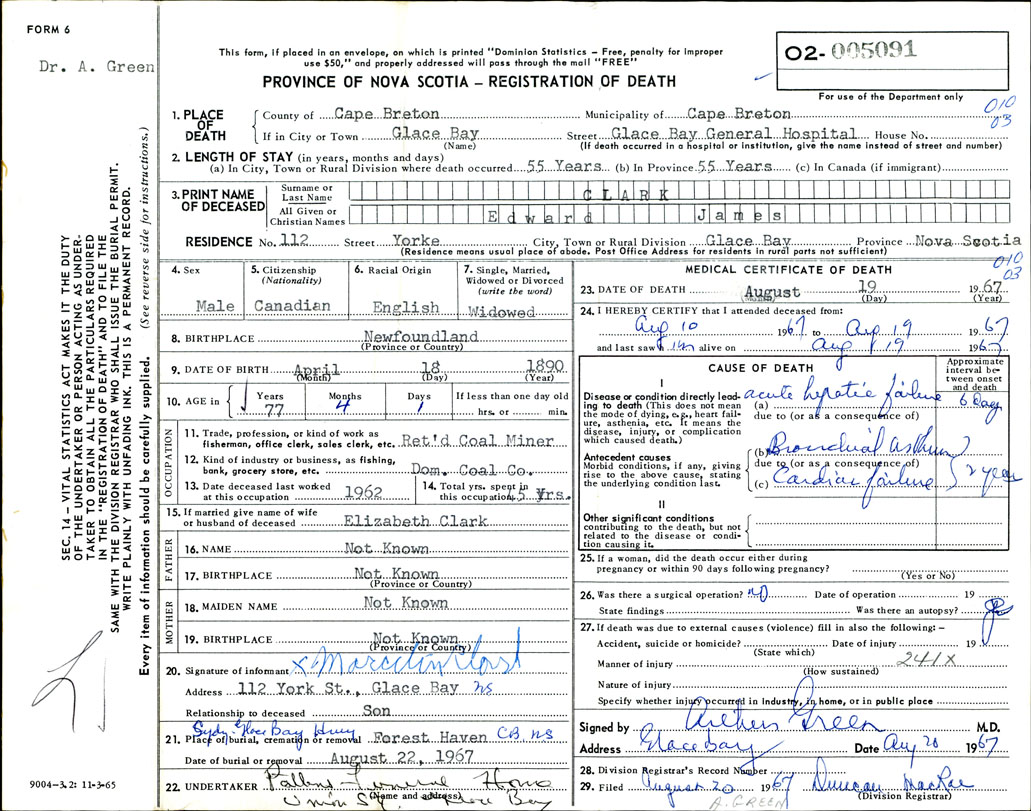 FORM 6
Dr. A. Green
This form, if placed in an envelope, on which is printed "Dominion Statistics – Free, penalty for improper
use $50," and properly addressed will pass through the mail "FREE"
PROVINCE OF NOVA SCOTIA – REGISTRATION OF DEATH
02-005091
For use of the Department only
010
03
SEC. 14 – VITAL STATISTICS ACT MAKES IT THE DUTY
OF THE UNDERTAKER OR PERSON ACTING AS UNDER-
TAKER TO OBTAIN ALL THE PARTICULARS REQUIRED
IN THE "REGISTRATION OF DEATH" AND TO FILE THE
SAME WITH THE DIVISION REGISTRAR WHO SHALL ISSUE THE BURIAL PERMIT.
WRITE PLAINLY WITH UNFADING INK. THIS IS A PERMANENT RECORD.
Every item of information should be carefully supplied. (See reverse side for instructions.)
1. PLACE OF DEATH
County of Cape Breton Municipality of Cape Breton
If in City or Town Glace Bay Street Glace Bay General Hospital House No.
(Name) (If death occurred in a hospital or institution, give the name instead of street and number)
2. LENGTH OF STAY (in years, months and days)
(a) In City, Town or Rural Division where death occurred 55 Years (b) In Province 55 Years (c) In Canada (if immigrant)
3. PRINT NAME OF DECEASED
Surname or Last Name CLARK
All Given or Christian Names Edward James
RESIDENCE No. 112 Street Yorke City, Town or Rural Division Glace Bay Province Nova Scotia
(Residence means usual place of abode. Post Office Address for residents in rural parts not sufficient)
4. Sex Male
5. Citizenship (Nationality) Canadian
6. Racial Origin English
7. Single, Married, Widowed or Divorced (write the word) Widowed
8. BIRTHPLACE Newfoundland
(Province or Country)
9. DATE OF BIRTH April 18 1890
(Month) (Day) (Year)
10. AGE in Years 77 Months 4 Days 1 If less than one day old hrs. or min.
OCCUPATION
11. Trade, profession, or kind of work as fisherman, office clerk, sales clerk, etc. Ret'd Coal Miner
12. Kind of industry or business, as fishing, bank, grocery store, etc. Dom. Coal Co.
13. Date deceased last worked at this occupation 1962
14. Total yrs. spent in this occupation 45 Yrs.
15. If married give name of wife or husband of deceased Elizabeth Clark
FATHER
16. NAME Not Known
17. BIRTHPLACE Not Known
(Province or Country)
MOTHER
18. MAIDEN NAME Not Known
19. BIRTHPLACE Not Known
(Province or Country)
20. Signature of informant X
Address 112 York St., Glace Bay NS
Relationship to deceased Son
Sydn. Glace Bay Hwy
21. Place of burial, cremation or removal Forest Haven CB. NS
Date of burial or removal August 22, 1967
22. UNDERTAKER Funeral Home
(Name and address)
Union St. Glace Bay
9004–3.2: 11-3-65
MEDICAL CERTIFICATE OF DEATH
010
03
23. DATE OF DEATH August 19 1967
(Month) (Day) (Year)
24. I HEREBY CERTIFY that I attended deceased from:
Aug 10 1967 to Aug 19 1967
and last saw him alive on Aug 19 1967
CAUSE OF DEATH
Approximate interval between onset and death
I
Disease or condition directly leading to death (This does not mean the mode of dying, e.g., heart failure, asthenia, etc. It means the disease, injury, or complication which caused death.)
(a) acute hepatic failure 6 Days
due to (or as a consequence of)
Antecedent causes
Morbid conditions, if any, giving rise to the above cause, stating the underlying condition last.
(b) Bronchial asthma
due to (or as a consequence of)
(c) Cardiac failure 2 year
II
Other significant conditions
contributing to the death, but not related to the disease or condition causing it.
25. If a woman, did the death occur either during
pregnancy or within 90 days following pregnancy?
(Yes or No)
26. Was there a surgical operation? no Date of operation 19
State findings Was there an autopsy?
27. If death was due to external causes (violence) fill in also the following: –
Accident, suicide or homicide? Date of injury 19
(State which)
Manner of injury 241X
(How sustained)
Nature of injury
Specify whether injury occurred in industry, in home, or in public place
Signed by Arthur Green M.D.
Address Glace Bay Date Aug 20 1967
28. Division Registrar's Record Number
29. Filed August 20 1967 Duncan MacRae
(Division Registrar)
A. GREEN